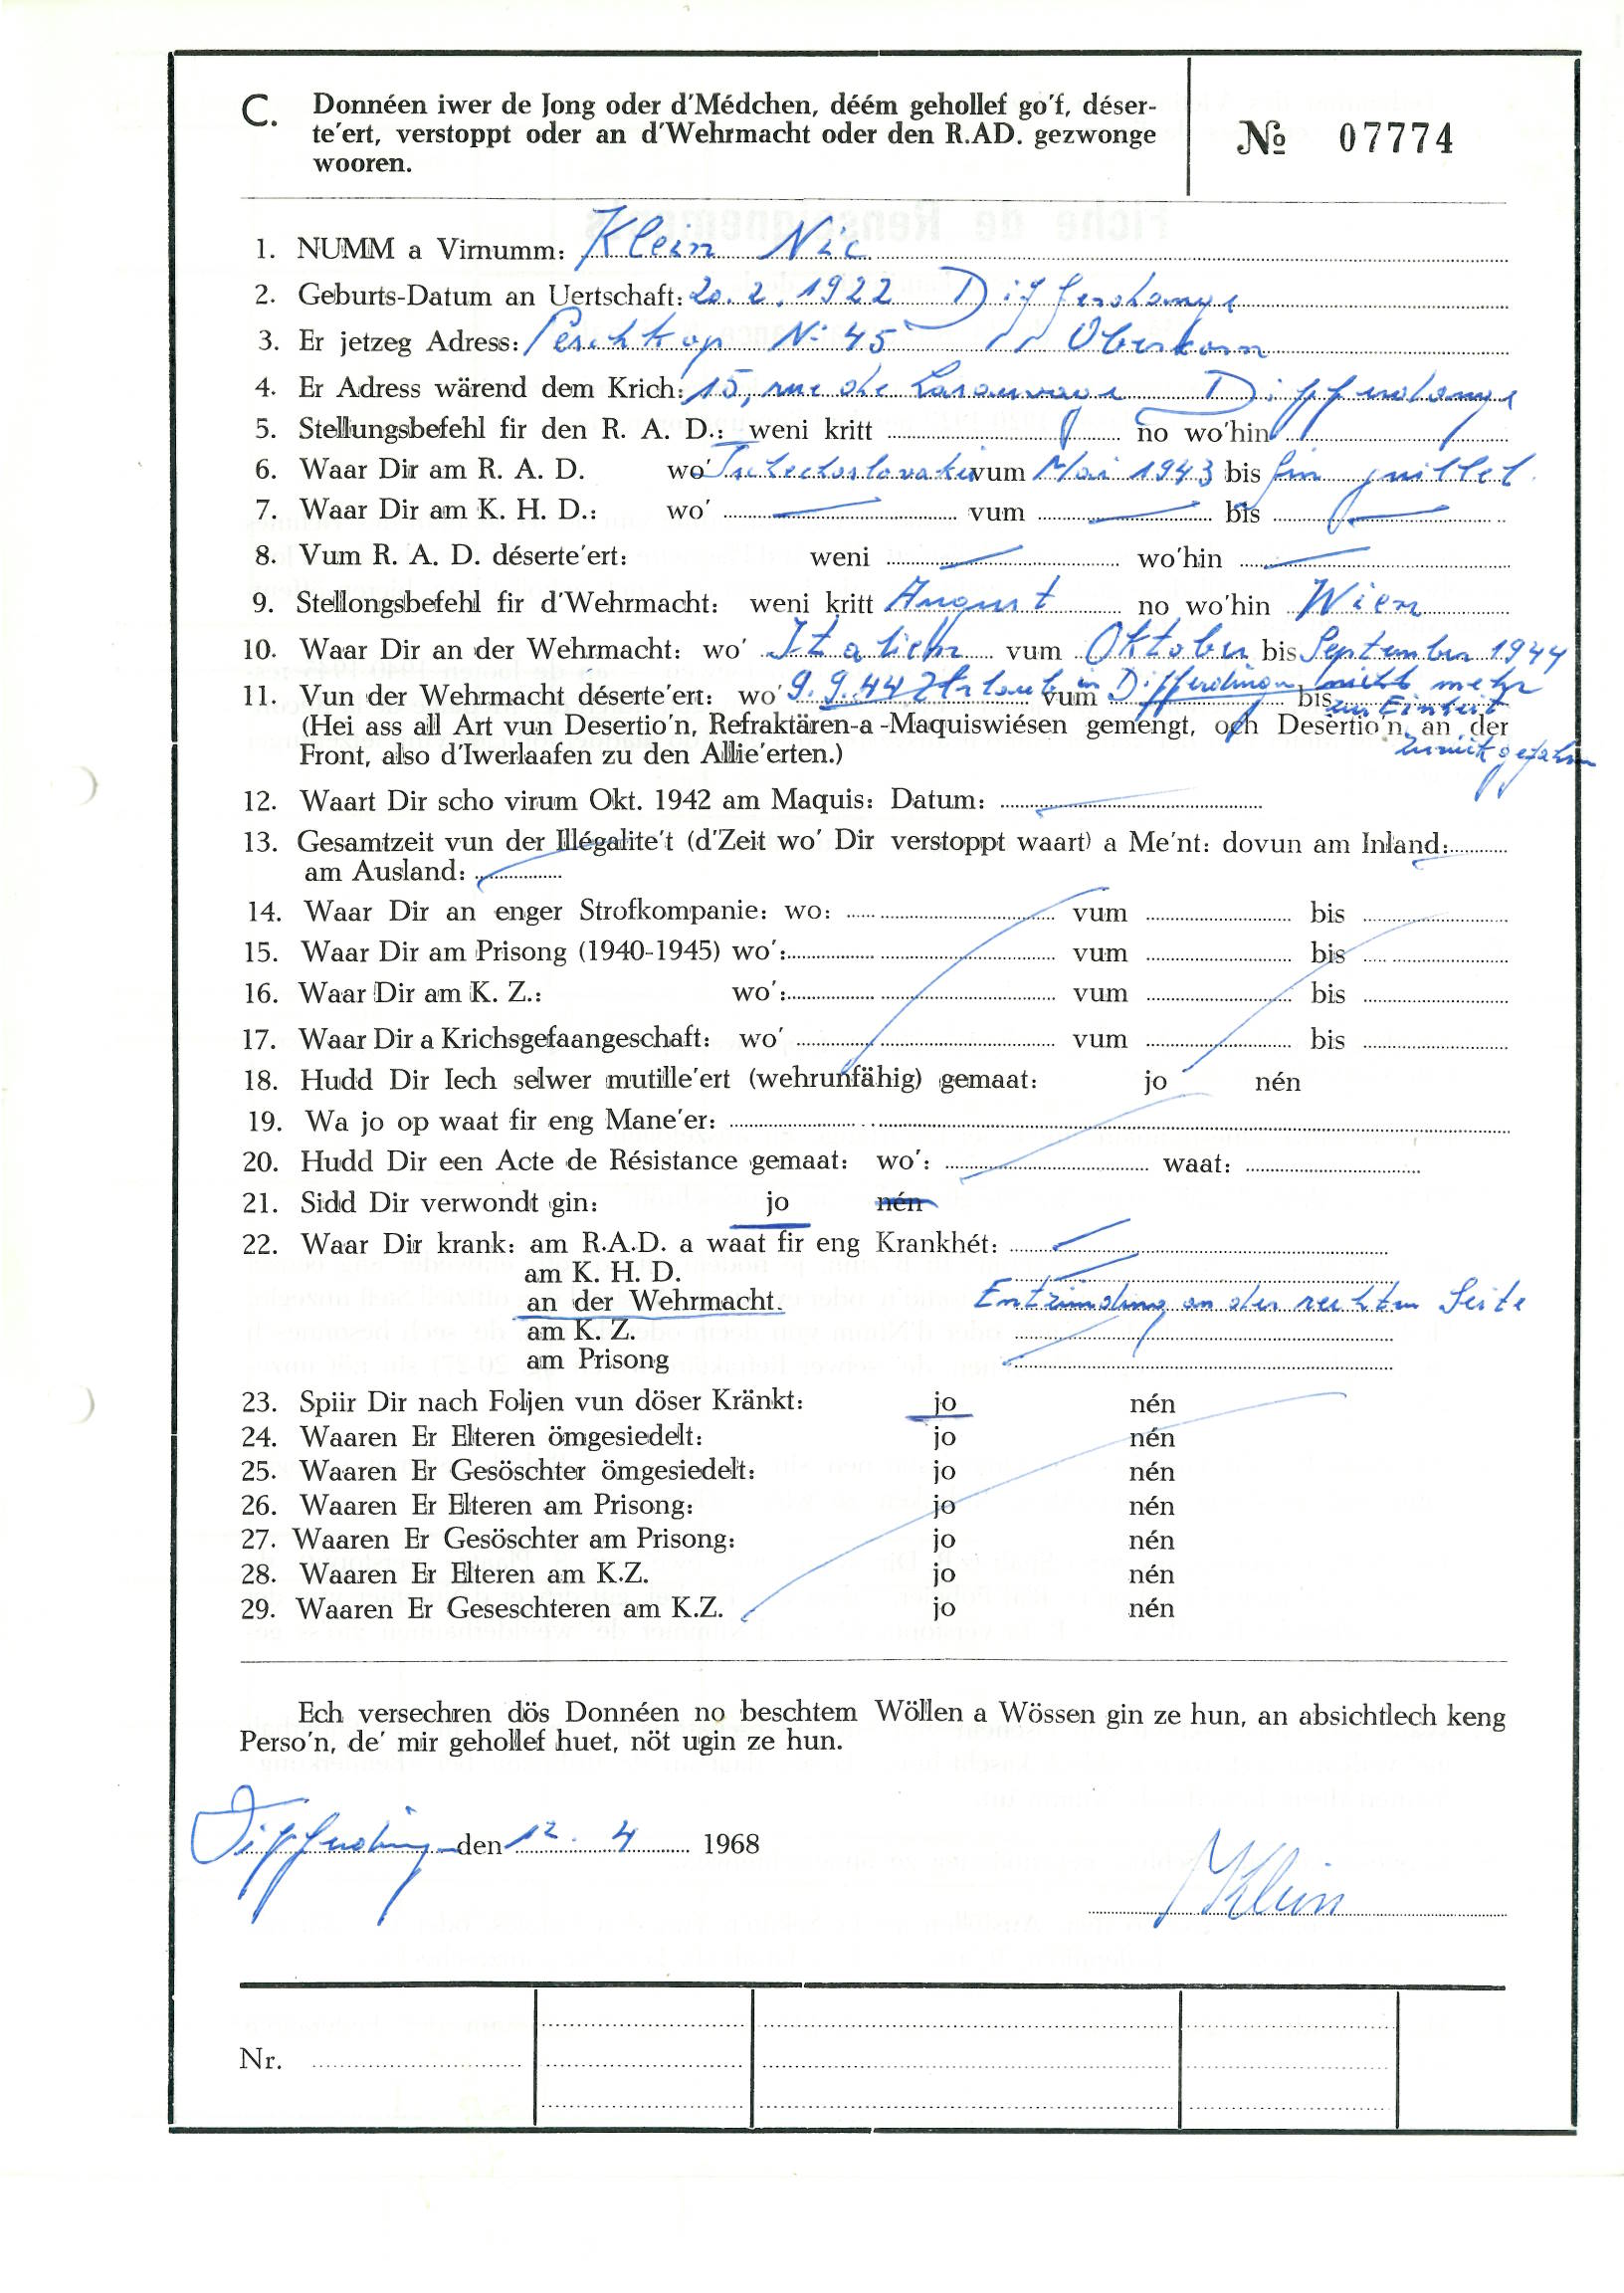 C. Donnéen iwer de Jong oder d'Médchen, déém gehollef go'f, déser-
te'ert, verstoppt oder an d'Wehrmacht oder den R.AD. gezwonge
wooren.
№ 07774
1. NUMM a Virnumm: Klein Nic
2. Geburts-Datum an Uertschaft: 20.2.1922 Differdange
3. Er jetzeg Adress: Peschkop N° 45 Oberkorn
4. Er Adress wärend dem Krich: 15, rue de Lasauvage Differdange
5. Stellungsbefehl fir den R. A. D.: weni kritt no wo'hin
6. Waar Dir am R. A. D. wo' Tschechoslovakei vum Mai 1943 bis fin juillet
7. Waar Dir am K. H. D.: wo' — vum — bis —
8. Vum R. A. D. déserte'ert: weni — wo'hin —
9. Stellongsbefehl fir d'Wehrmacht: weni kritt August no wo'hin Wien
10. Waar Dir an der Wehrmacht: wo' Italien vum Oktober bis September 1944
11. Vun der Wehrmacht déserte'ert: wo' 9.9.44 Urlaub in vum Differdingen bis nicht mehr
zur Einheit
(Hei ass all Art vun Desertio'n, Refraktären-a -Maquiswiésen gemengt, och Desertio'n an der
Front, also d'Iwerlaafen zu den Allie'erten.) zurückgefahren
12. Waart Dir scho virum Okt. 1942 am Maquis: Datum: —
13. Gesamtzeit vun der Illégalite't (d'Zeit wo' Dir verstoppt waart) a Me'nt: dovun am Inland:
am Ausland:
14. Waar Dir an enger Strofkompanie: wo: vum bis
15. Waar Dir am Prisong (1940-1945) wo': vum bis
16. Waar Dir am K. Z.: wo': vum bis
17. Waar Dir a Krichsgefaangeschaft: wo' vum bis
18. Hudd Dir Iech selwer mutille'ert (wehrunfähig) gemaat: jo nén
19. Wa jo op waat fir eng Mane'er:
20. Hudd Dir een Acte de Résistance gemaat: wo': waat:
21. Sidd Dir verwondt gin: jo nén
22. Waar Dir krank: am R.A.D. a waat fir eng Krankhét: —
am K. H. D. —
an der Wehrmacht. Entzündung an der rechten Seite
am K. Z.
am Prisong
23. Spiir Dir nach Foljen vun döser Kränkt: jo nén
24. Waaren Er Elteren ömgesiedelt: jo nén
25. Waaren Er Gesöschter ömgesiedelt: jo nén
26. Waaren Er Elteren am Prisong: jo nén
27. Waaren Er Gesöschter am Prisong: jo nén
28. Waaren Er Elteren am K.Z. jo nén
29. Waaren Er Geseschteren am K.Z. jo nén
Ech versechren dös Donnéen no beschtem Wöllen a Wössen gin ze hun, an absichtlech keng
Perso'n, de' mir gehollef huet, nöt ugin ze hun.
Differdingen den 12. 4 1968
Klein
Nr.